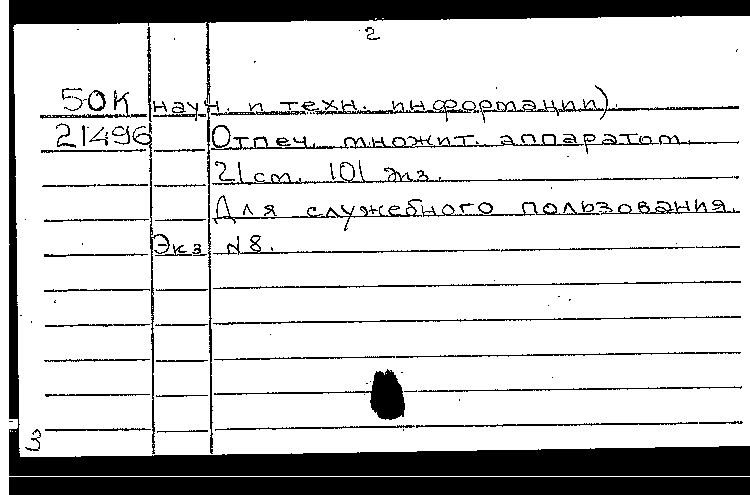 2
50К науч. и техн. информации).
21496 Отпеч. множит. аппаратом.
21 см. 101 экз.
Для служебного пользования.
Экз N8.
3